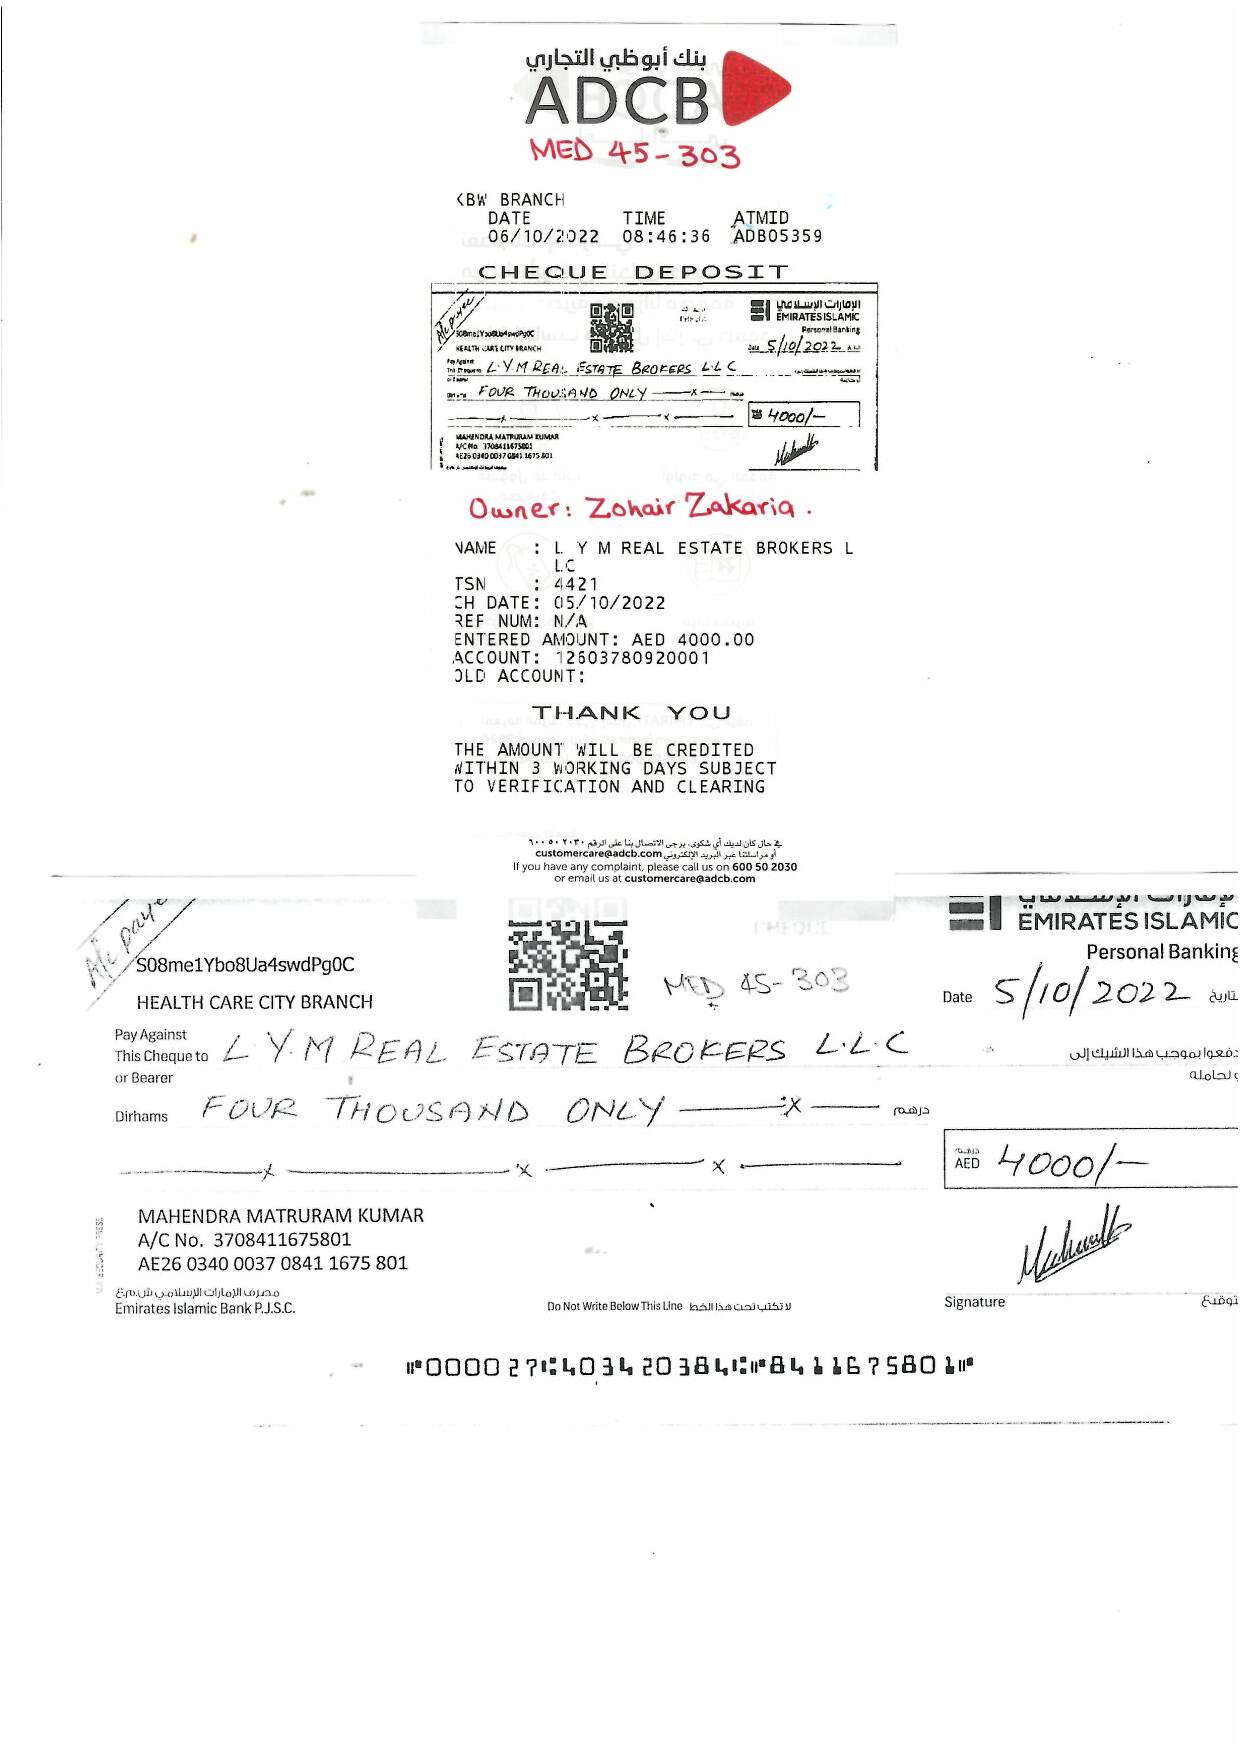 بنك أبوظبي التجاري
ADCB
MED 45-303
KBW BRANCH
DATE TIME ATMID
06/10/2022 08:46:36 ADB05359
CHEQUE DEPOSIT
A/c payee
الإمارات الإسلامي
EMIRATES ISLAMIC
Personal Banking
S08me1Ybo8Ua4swdPg0C
HEALTH CARE CITY BRANCH
Date 5/10/2022
Pay Against
This Cheque to L.Y M REAL ESTATE BROKERS L.L.C
or Bearer
Dirhams FOUR THOUSAND ONLY —x—
—x— —x— —x—
AED 4000/-
MAHENDRA MATRURAM KUMAR
A/C No. 3708411675801
AE26 0340 0037 0841 1675 801
Owner: Zohair Zakaria.
NAME : L Y M REAL ESTATE BROKERS L
LC
TSN : 4421
CH DATE: 05/10/2022
REF NUM: N/A
ENTERED AMOUNT: AED 4000.00
ACCOUNT: 12603780920001
OLD ACCOUNT:
THANK YOU
THE AMOUNT WILL BE CREDITED
WITHIN 3 WORKING DAYS SUBJECT
TO VERIFICATION AND CLEARING
في حال كان لديك أي شكوى، يرجى الاتصال بنا على الرقم ٦٠٠ ٥٠ ٢٠٣٠
أو مراسلتنا عبر البريد الإلكتروني customercare@adcb.com
If you have any complaint, please call us on 600 50 2030
or email us at customercare@adcb.com
A/c payee
EMIRATES ISLAMIC
Personal Banking
S08me1Ybo8Ua4swdPg0C
MED 45-303
HEALTH CARE CITY BRANCH
Date 5/10/2022 تاريخ
Pay Against
This Cheque to L Y.M REAL ESTATE BROKERS L.L.C دفعوا بموجب هذا الشيك إلى
or Bearer و لحامله
Dirhams FOUR THOUSAND ONLY —x— درهم
—x— —x— —x—
درهم
AED 4000/-
MAHENDRA MATRURAM KUMAR
A/C No. 3708411675801
AE26 0340 0037 0841 1675 801
مصرف الإمارات الإسلامي ش.م.ع
Emirates Islamic Bank P.J.S.C.
Do Not Write Below This Line لا تكتب تحت هذا الخط
Signature توقيع
⑈000027⑆403420384⑆⑈8411675801⑈